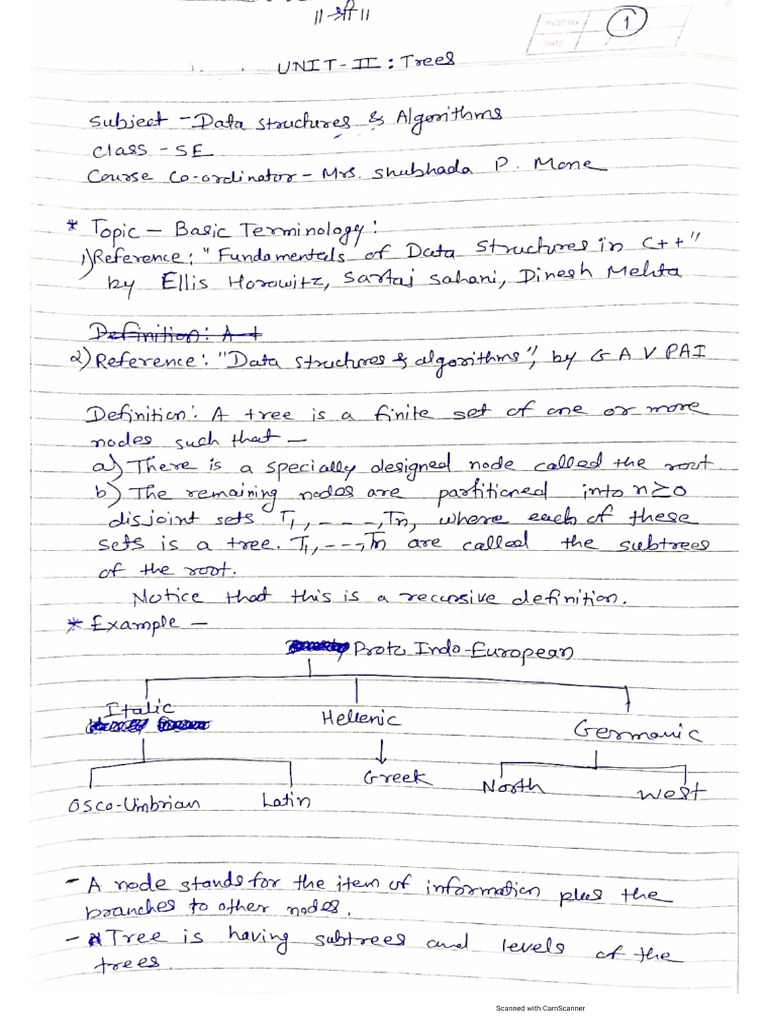 ॥ श्री ॥
PAGE No.
DATE
1
UNIT-II : Trees
Subject - Data structures & Algorithms
Class - SE
Course Co-ordinator - Mrs. Shubhada P. Mone
* Topic - Basic Terminology:
1) Reference: "Fundamentals of Data Structures in C++"
by Ellis Horowitz, Sartaj Sahani, Dinesh Mehta
Definition: A t
2) Reference: "Data structures & algorithms", by G A V PAI
Definition: A tree is a finite set of one or more
nodes such that -
a) There is a specially designed node called the root
b) The remaining nodes are partitioned into n≥0
disjoint sets T1, ---, Tn, where each of these
sets is a tree. T1, ---, Tn are called the subtrees
of the root.
Notice that this is a recursive definition.
* Example -
Proto Indo-European
Italic Hellenic Germanic
Osco-Umbrian Latin Greek North West
- A node stands for the item of information plus the
branches to other nodes.
- Tree is having subtrees and levels of the
trees.
Scanned with CamScanner